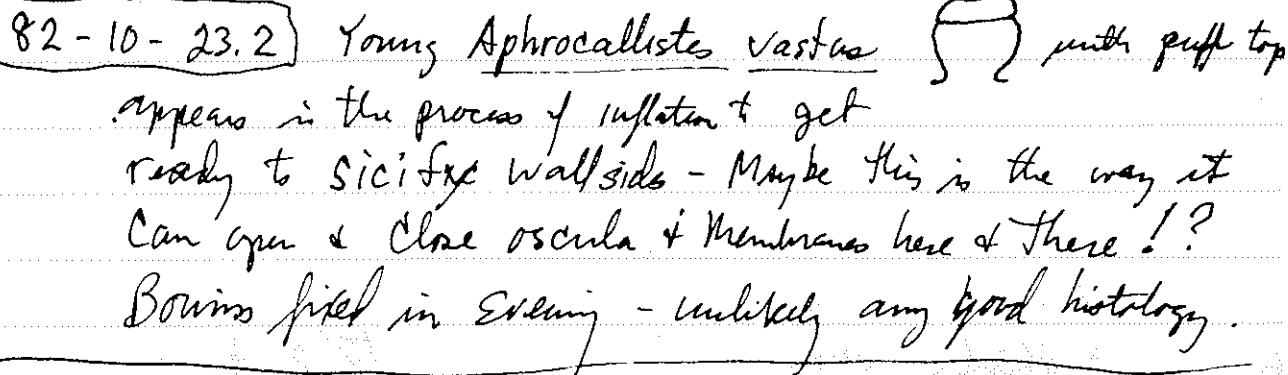 82-10-23.2) Young Aphrocallistes vastus with puff top
appears in the process of inflation to get
ready to sicify wall sides - Maybe this is the way it
Can open & Close oscula & Membranes here & There!?
Bouins fixed in Evening - unlikely any good histology.